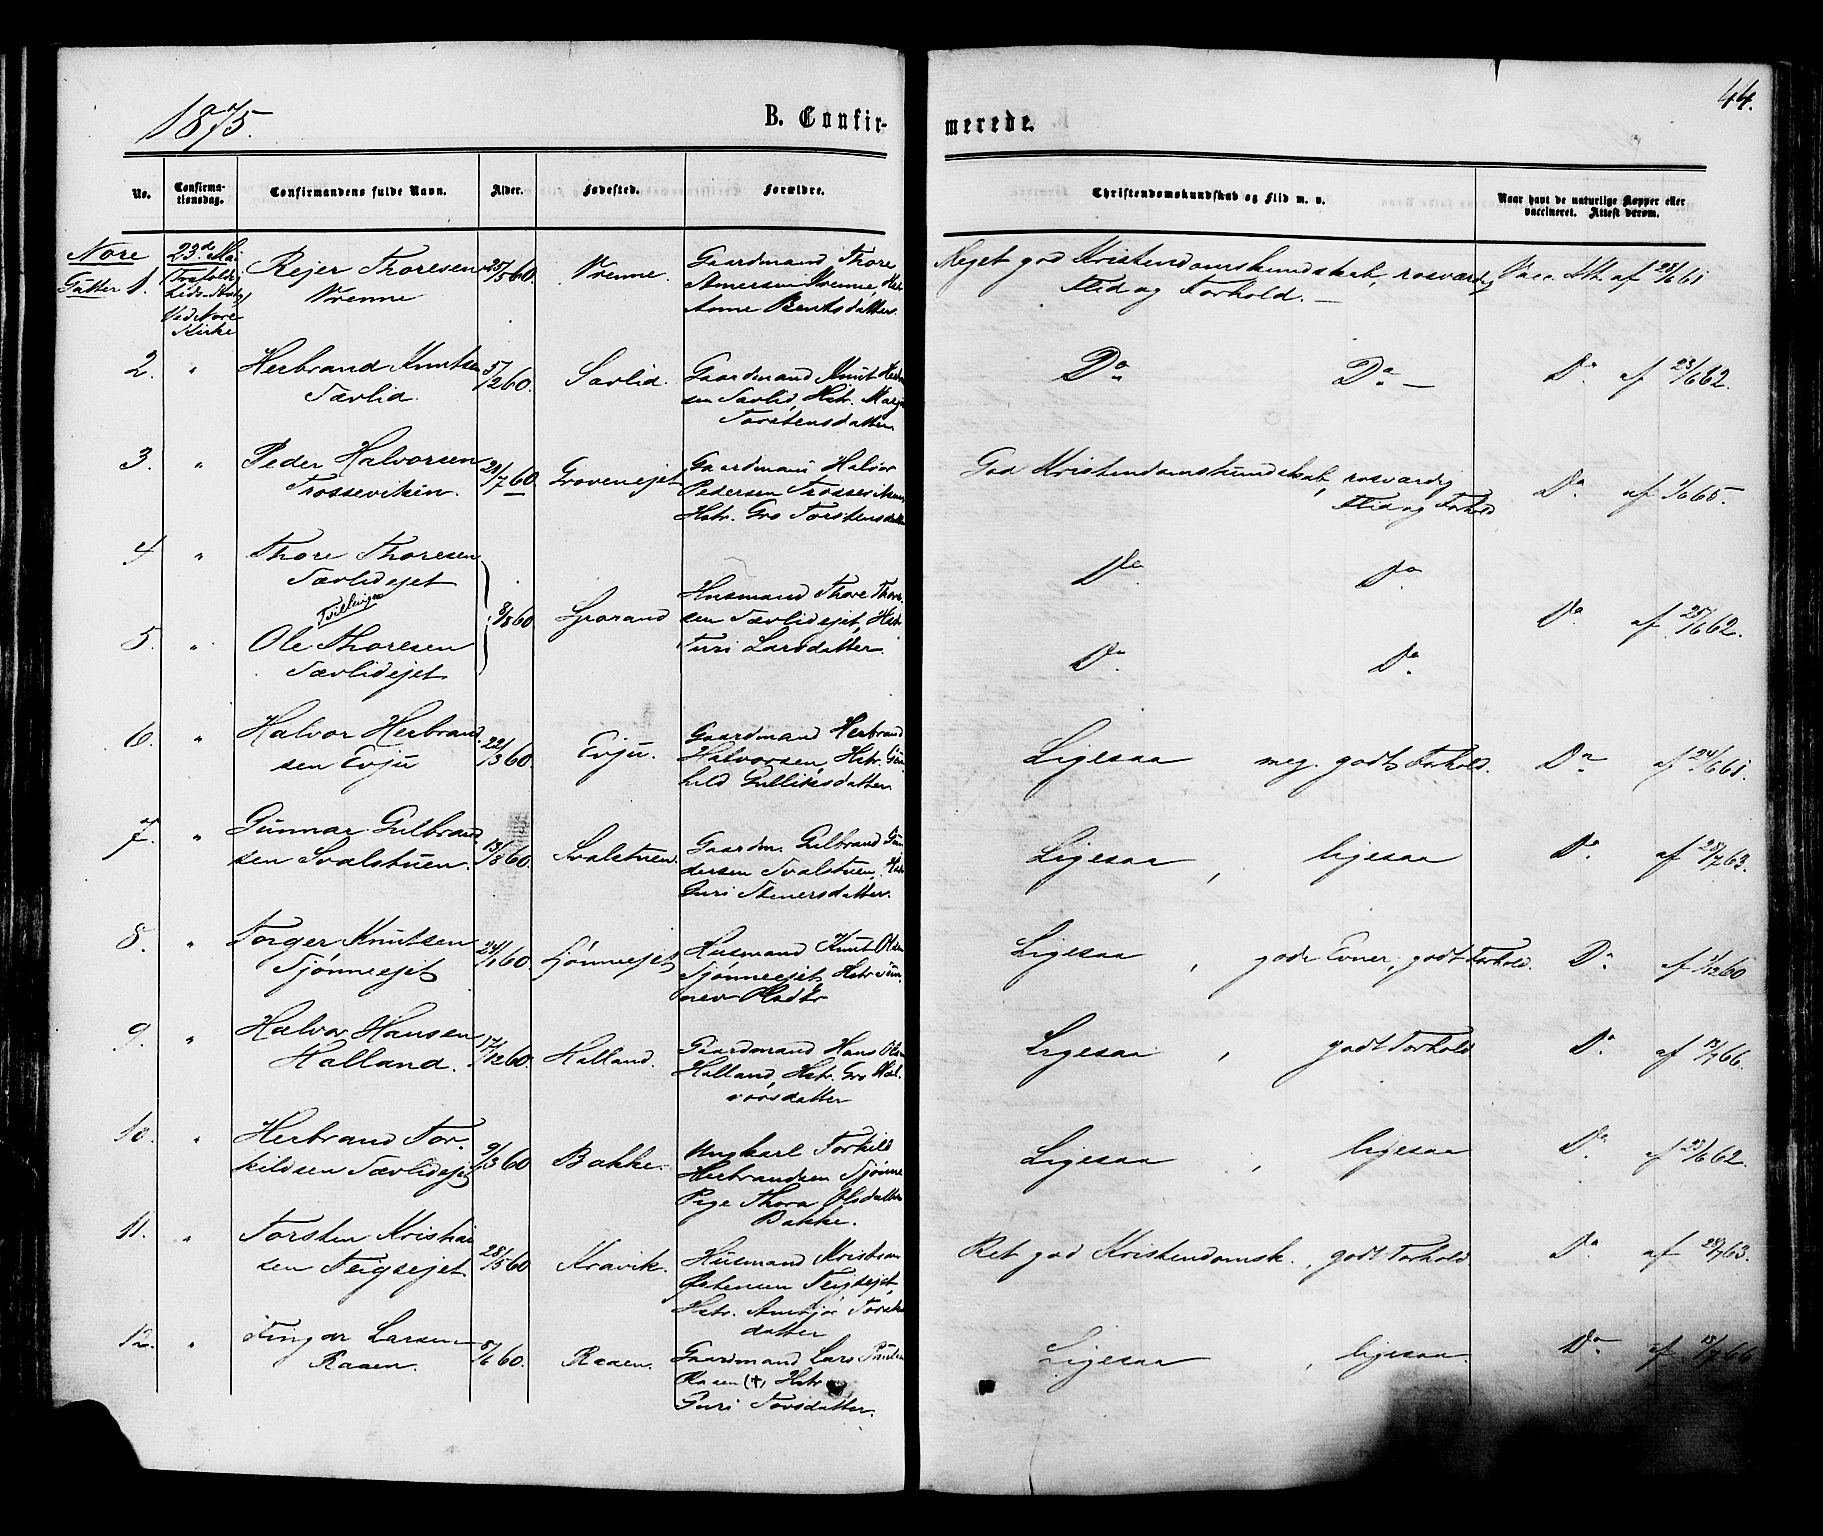 1875.
B. Confir-
merede.
44.
No.
Confirma-
tionsdag.
Confirmandens fulde Navn.
Alder.
Fødested.
Forældre.
Christendomskundskab og Flid m. v.
Naar havt de naturlige Kopper eller
vaccineret. Attest derom.
Nore
Gutter 1.
23d Mai
Ved Nore
Kirke
Rejer Thoresen
Vrenne
25/5 60.
Vrenne.
Gaardmand Thore
Vrenne, Hstr.
Anne Berntsdatter.
Meget god Kristendomskundskab, rosværdig
Flid og Forhold. —
Vacc. Att. af 28/6 61
2.
"
Herbrand Knutsen
Sævlid.
5/12 60.
Sævlid.
Gaardmand Knut Herbr.
sen Sævlid, Hstr. Marg
Torstensdatter
Do
Do —
Do af 23/6 62.
3.
"
Peder Halvorsen
Trosseviken.
20/7 60
Grovenejet
Gaardmand Halvor
Pedersen Trosseviken,
Hstr. Gro Torstensdatter
God Kristendomskundskab, rosværdig
Flid og Forhold
Do af 1/6 65.
4
"
Thore Thoresen
Sævlidejet
Tvillinger
9/8 60
Husmand Thore Thore-
sen Sævlidejet, Hstr.
Turi Larsdatter.
Do
Do
Do af 25/6 62.
5.
"
Ole Thoresen
Sævlidejet
Do
Do
6.
"
Halvor Herbrand-
sen Evju
22/3 60.
Evju.
Gaardmand Herbrand
Halvorsen, Hstr. Gun
hild Gulliksdatter
Ligesaa meg. godt Forhold.
Do af 24/6 61.
7.
"
Gunnar Gulbrand
sen Svalstuen.
13/8 60
Svalstuen.
Gaardm. Gulbrand Gun
dersen Svalstuen, Hstr
Guri Stenersdatter.
Ligesaa, ligesaa
Do af 28/7 63.
8.
"
Torger Knutsen
Sjønneejet
24/1 60.
Sjønneejet
Husmand Knut Olsen
Sjønneejet, Hstr. Sun-
nev Olsdtr
Ligesaa, gode Evner, godt Forhold.
Do af 1/12 60
9.
"
Halvor Hansen
Halland.
17/12 60.
Halland.
Gaardmand Hans Olsen
Halland, Hstr. Gro Hal-
vorsdatter
Ligesaa, godt Forhold
Do af 13/7 66.
10.
"
Herbrand Tor-
kildsen Sævlidejet
9/3 60
Bakke.
Ungkarl Torkild
Herbrandsen Sjønne
Pige Thora Olsdatter
Bakke.
Ligesaa, ligesaa
Do af 25/6 62.
11.
"
Torsten Kristian
sen Teigsejet
28/5 60
Kravik.
Husmand Kristian
Østensen Teigsejet,
Hstr. Torsten
datter
Ret god Kristendomsk., godt Forhold
Do af 28/7 63.
12.
"
Larsen
Raaen.
8/6 60.
Raaen.
Gaardmand Lars Paulsen
Raaen (+), Hstr
Guri Tovsdatter.
Ligesaa, ligesaa.
Do af 13/7 66